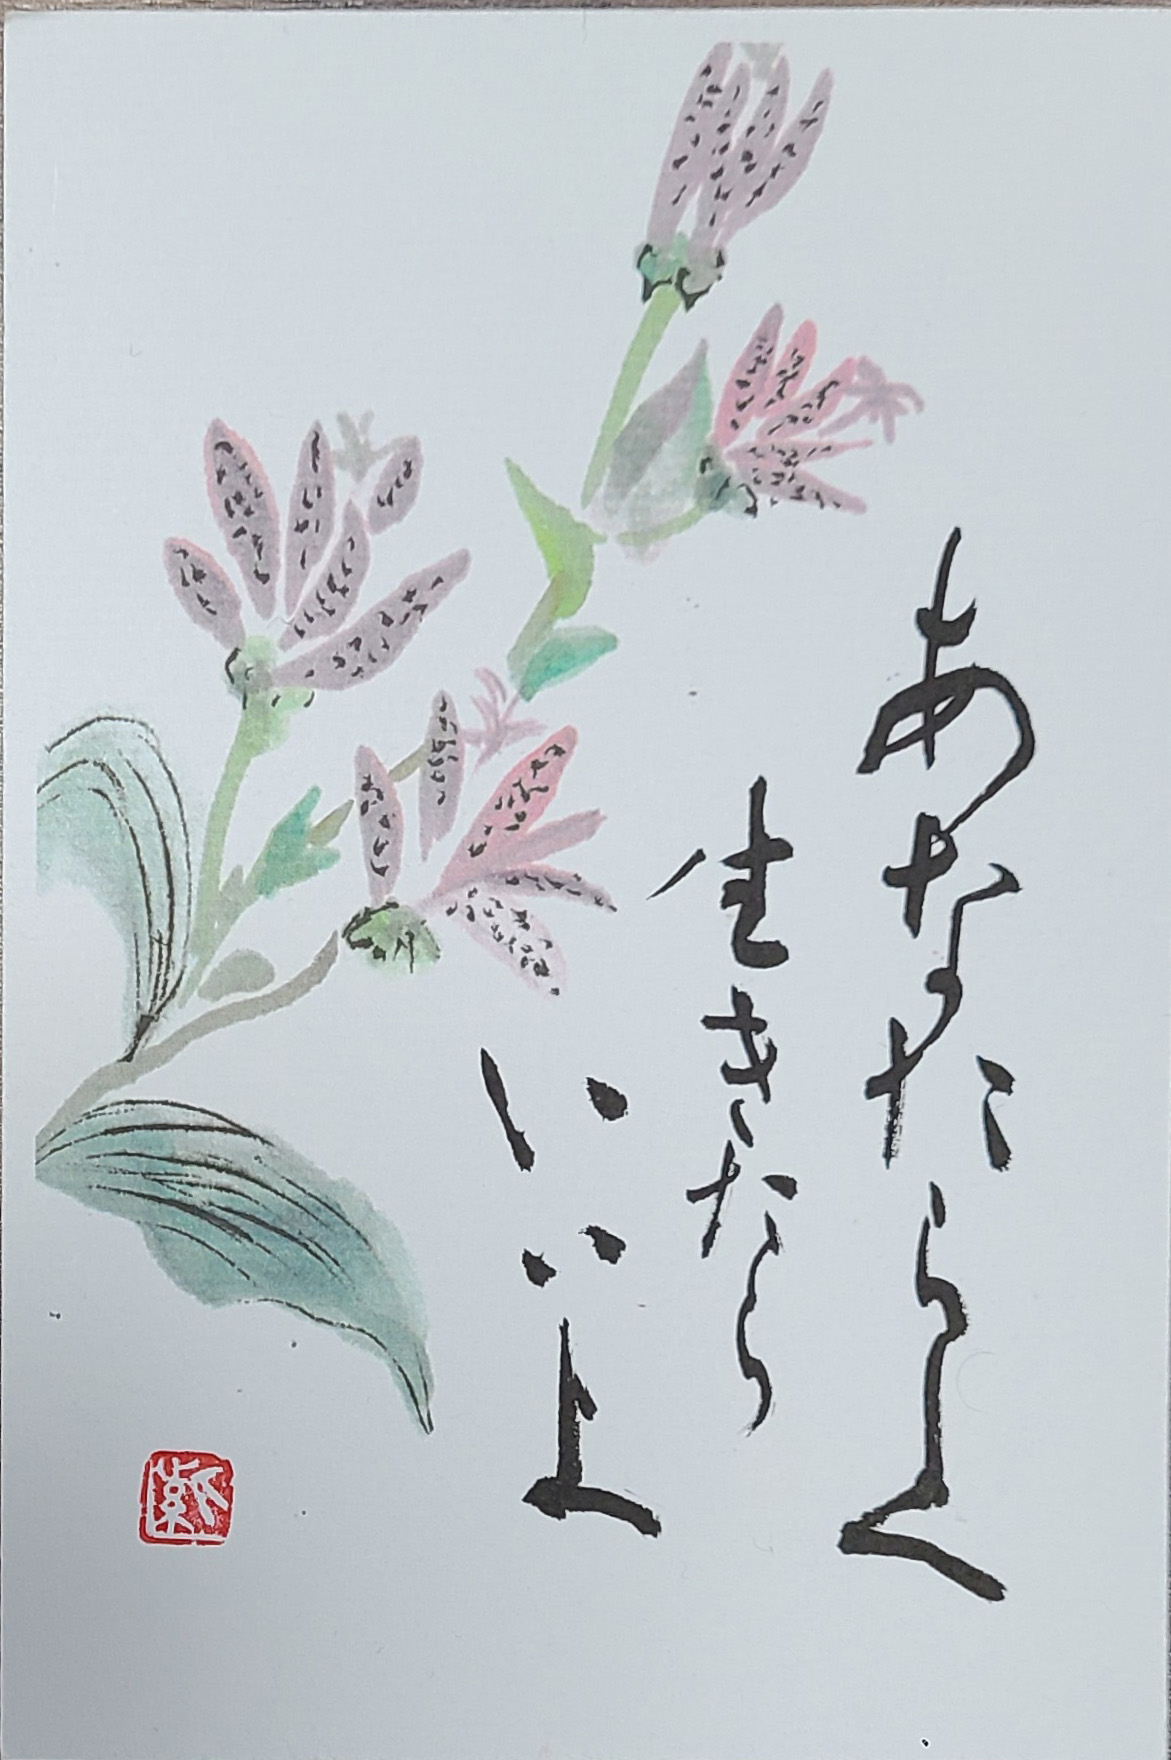 あなたらしく
生きたら
いいよ